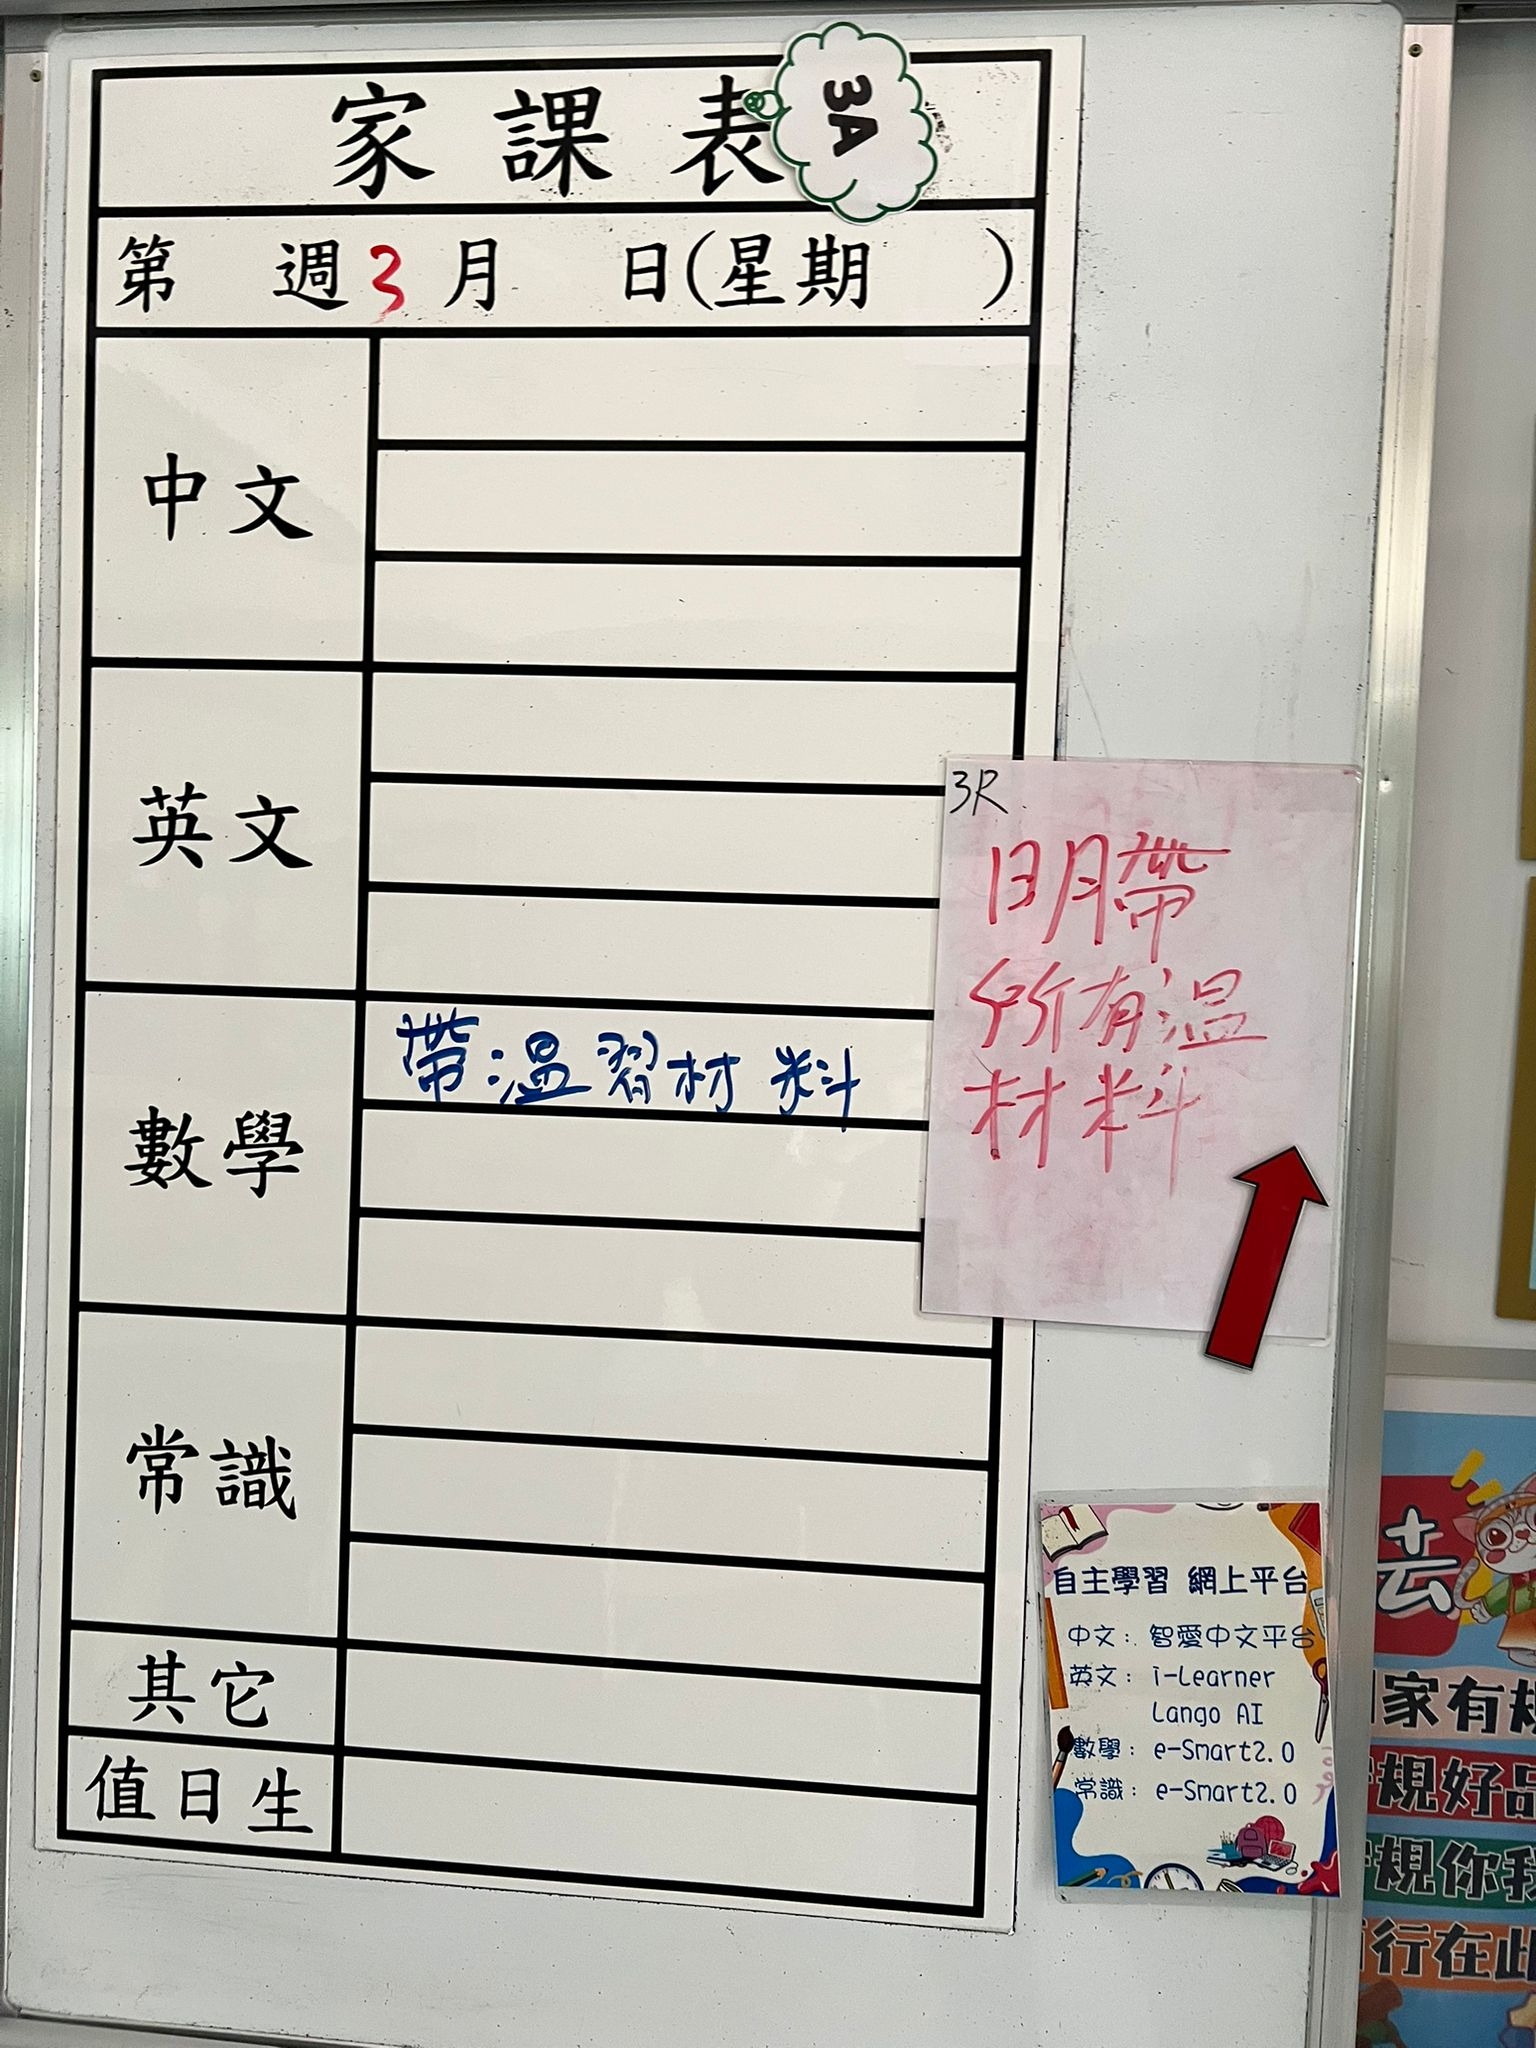 家課表
3A
第 週 3 月 日(星期 )
中文
英文
數學
帶温習材料
常識
其它
值日生
3R
明帶
所有温
材料
自主學習 網上平台
中文：智愛中文平台
英文：i-Learner
Lango AI
數學：e-Smart2.0
常識：e-Smart2.0
去
家有規
規好品
規你我
行在此